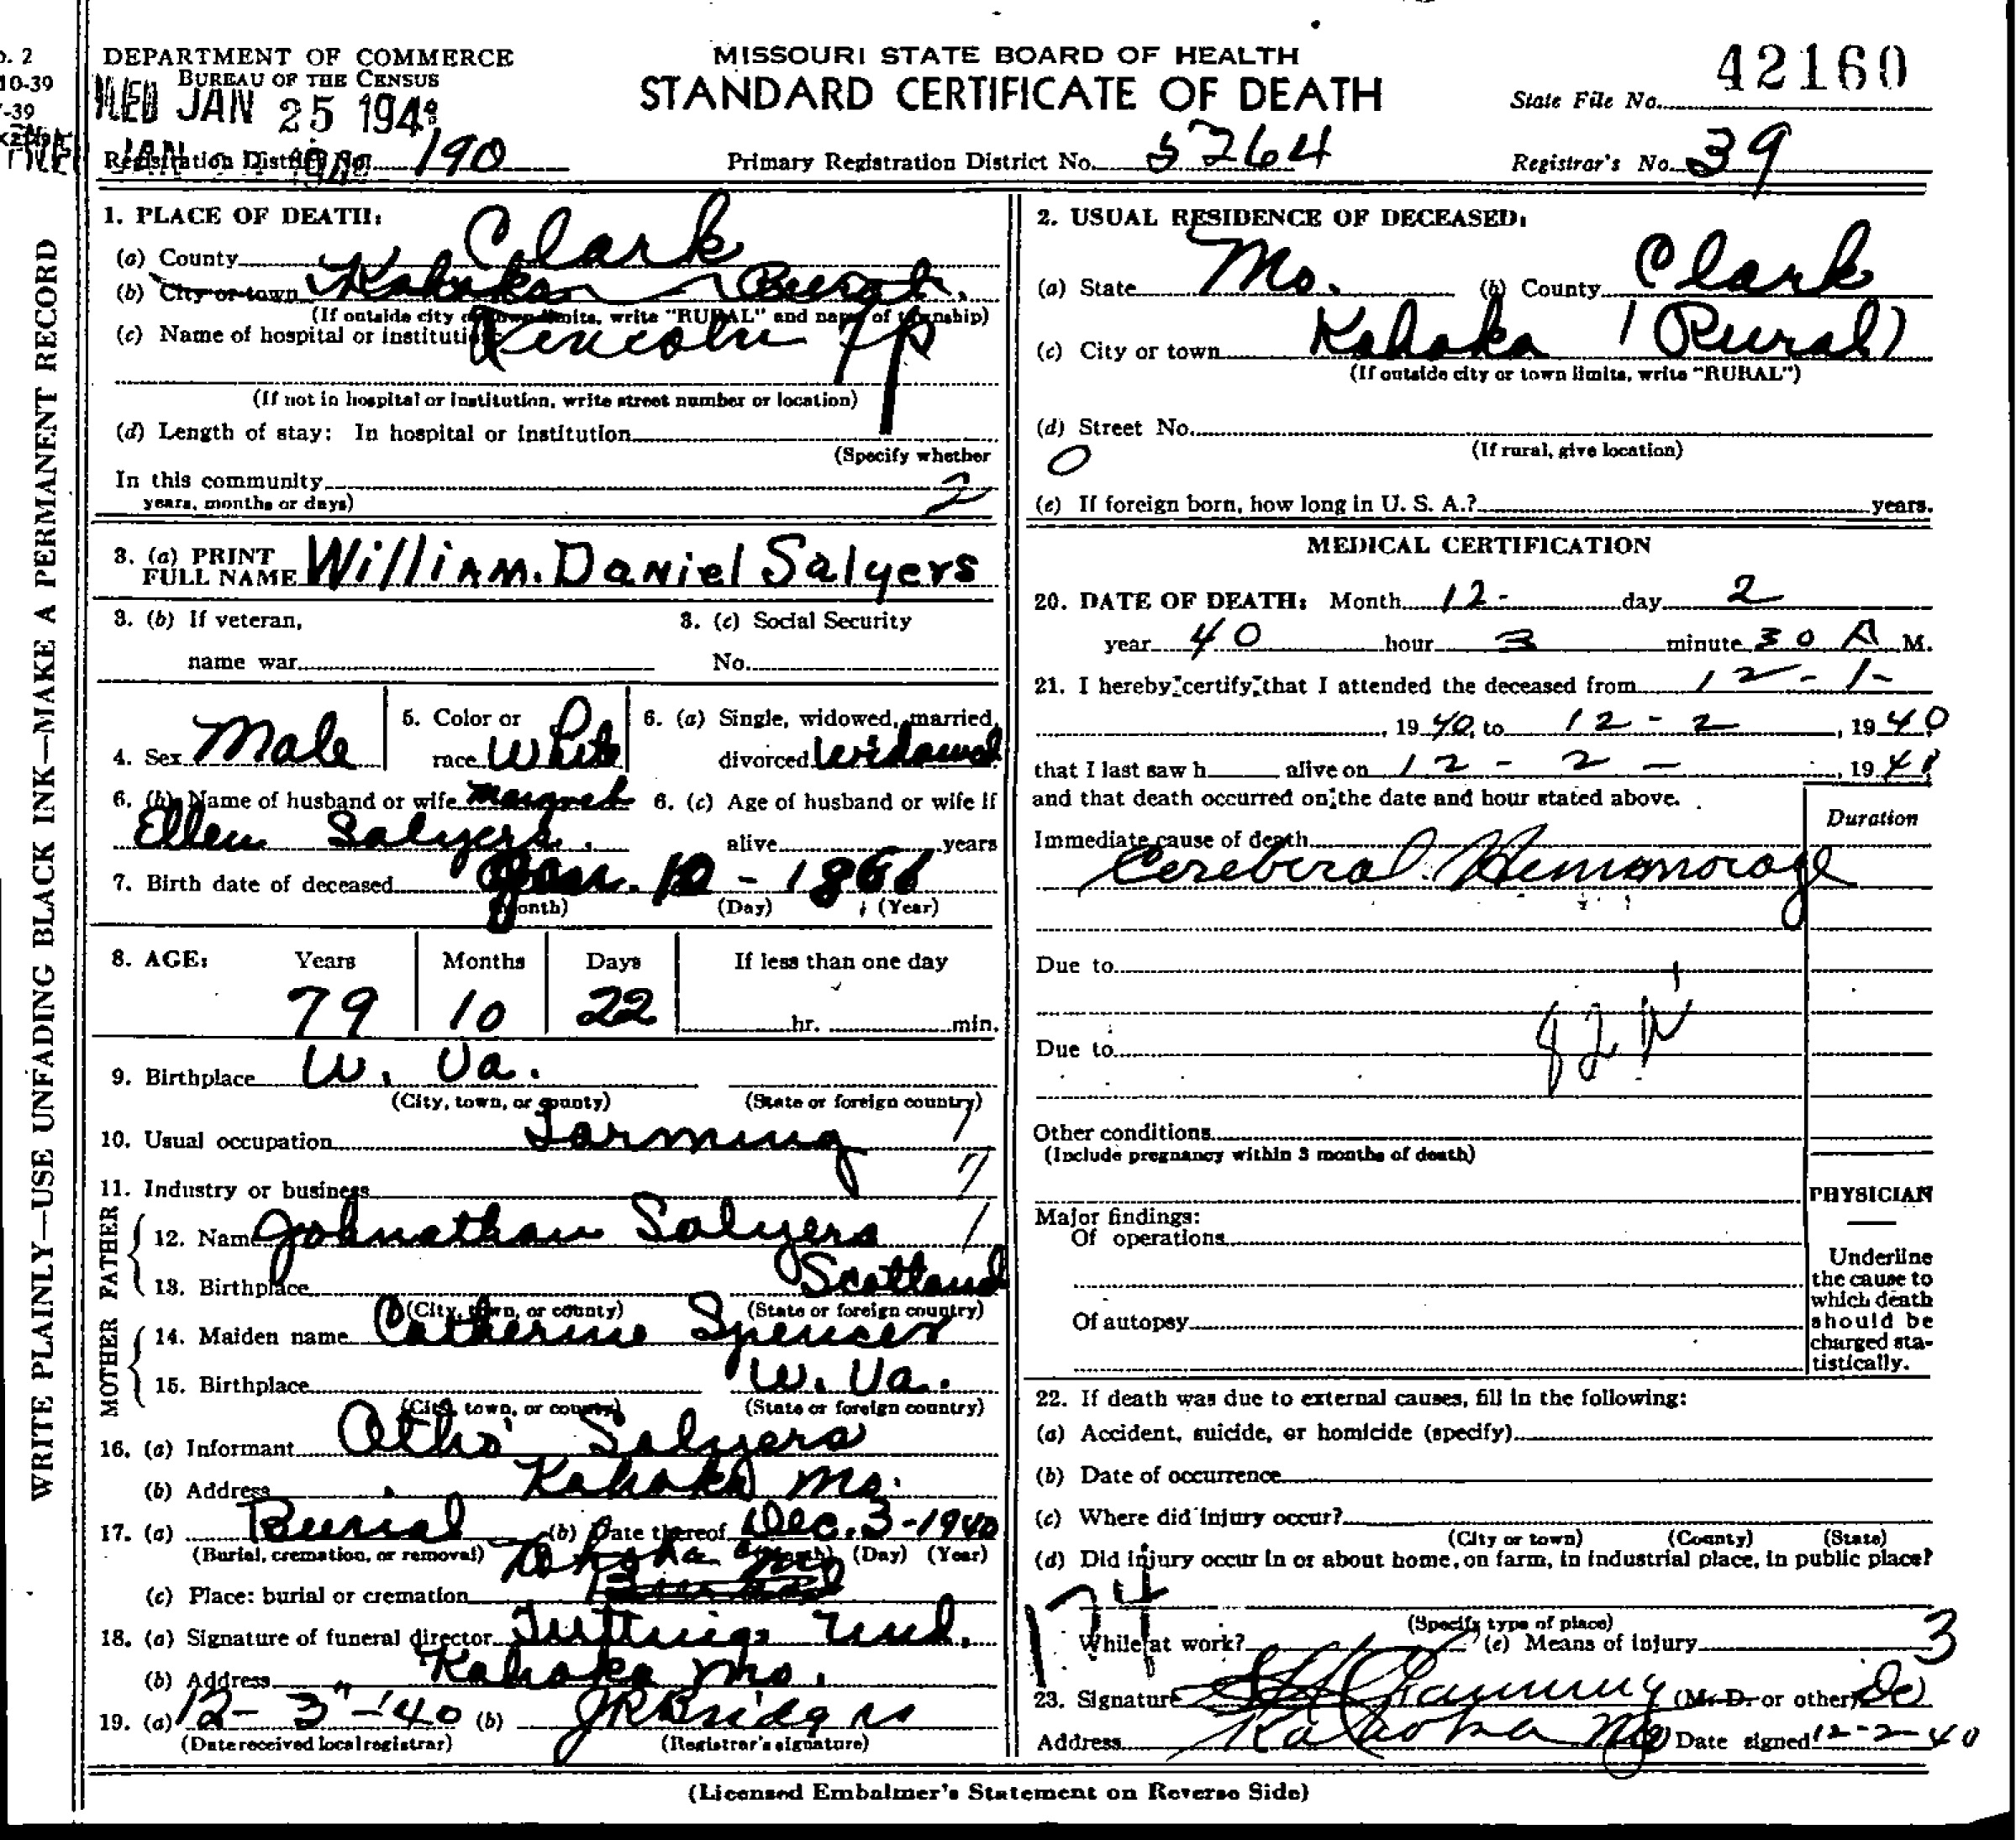 DEPARTMENT OF COMMERCE
BUREAU OF THE CENSUS
JAN 25 194
MISSOURI STATE BOARD OF HEALTH
STANDARD CERTIFICATE OF DEATH
State File No. 42160
Registration District No. 190
Primary Registration District No. 5264
Registrar's No. 39
WRITE PLAINLY—USE UNFADING BLACK INK—MAKE A PERMANENT RECORD
1. PLACE OF DEATH:
(a) County Clark
(b) City or town Kahoka - Rural.
(If outside city or town limits, write "RURAL" and name of township)
(c) Name of hospital or institution Lincoln Tp
(If not in hospital or institution, write street number or location)
(d) Length of stay: In hospital or institution
(Specify whether
In this community 2
years, months or days)
3. (a) PRINT FULL NAME William. Daniel Salyers
3. (b) If veteran,
name war
3. (c) Social Security
No.
4. Sex Male
5. Color or race White
6. (a) Single, widowed, married, divorced Widowed
6. (b) Name of husband or wife Margret
Ellen Salyers.
6. (c) Age of husband or wife if
alive years
7. Birth date of deceased Jan. 10 - 1861
(Month) (Day) (Year)
8. AGE: Years Months Days If less than one day
79 10 22 hr. min.
9. Birthplace W. Va.
(City, town, or county) (State or foreign country)
10. Usual occupation Farming
11. Industry or business
FATHER
12. Name Johnathan Salyers
13. Birthplace Scotland
(City, town, or county) (State or foreign country)
MOTHER
14. Maiden name Catherine Spencer
15. Birthplace W. Va.
(City, town, or county) (State or foreign country)
16. (a) Informant Otho Salyers
(b) Address Kahoka Mo.
17. (a) Burial (b) Date thereof Dec. 3-1940
(Burial, cremation, or removal) (Month) (Day) (Year)
(c) Place: burial or cremation Kahoka
18. (a) Signature of funeral director
(b) Address Kahoka Mo.
19. (a) 12-3-'40 (b) JR Bridges
(Date received local registrar) (Registrar's signature)
2. USUAL RESIDENCE OF DECEASED:
(a) State Mo. (b) County Clark
(c) City or town Kahoka (Rural)
(If outside city or town limits, write "RURAL")
(d) Street No.
(If rural, give location)
0
(e) If foreign born, how long in U. S. A.? years.
MEDICAL CERTIFICATION
20. DATE OF DEATH: Month 12- day 2
year 40 hour 3 minute 30 A M.
21. I hereby certify that I attended the deceased from 12-1-
, 1940, to 12-2, 1940
that I last saw h alive on 12-2-, 194
and that death occurred on the date and hour stated above.
Duration
Immediate cause of death
Cereberal. Hemmorage
Due to
Due to
Other conditions
(Include pregnancy within 3 months of death)
PHYSICIAN
Major findings:
Of operations
Of autopsy
Underline
the cause to
which death
should be
charged sta-
tistically.
22. If death was due to external causes, fill in the following:
(a) Accident, suicide, or homicide (specify)
(b) Date of occurrence
(c) Where did injury occur?
(City or town) (County) (State)
(d) Did injury occur in or about home, on farm, in industrial place, in public place?
(Specify type of place)
While at work? (e) Means of injury 3
23. Signature (M. D. or other) Do
Address Kahoka Mo Date signed 12-2-40
(Licensed Embalmer's Statement on Reverse Side)